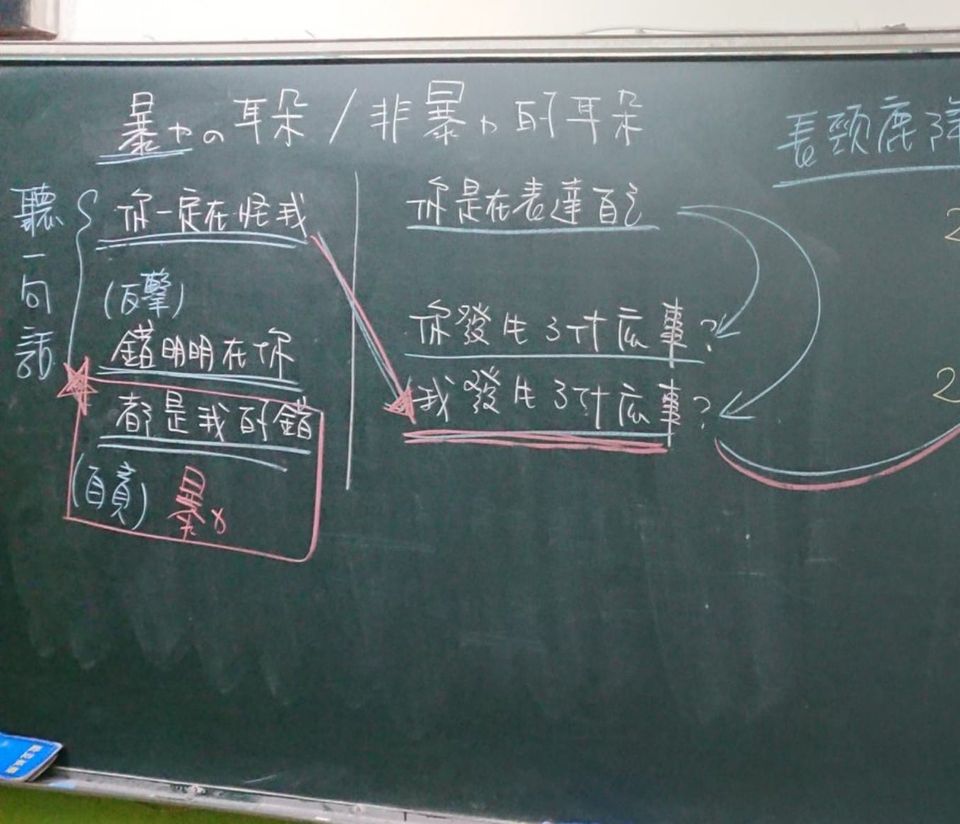 暴力の耳朵/非暴力的耳朵
長頸鹿
聽一句話
你一定在怪我
(反擊)
錯明明在你
都是我的錯
(自責) 暴力
你是在表達自己
你發生了什広事?
我發生了什広事?
2
2